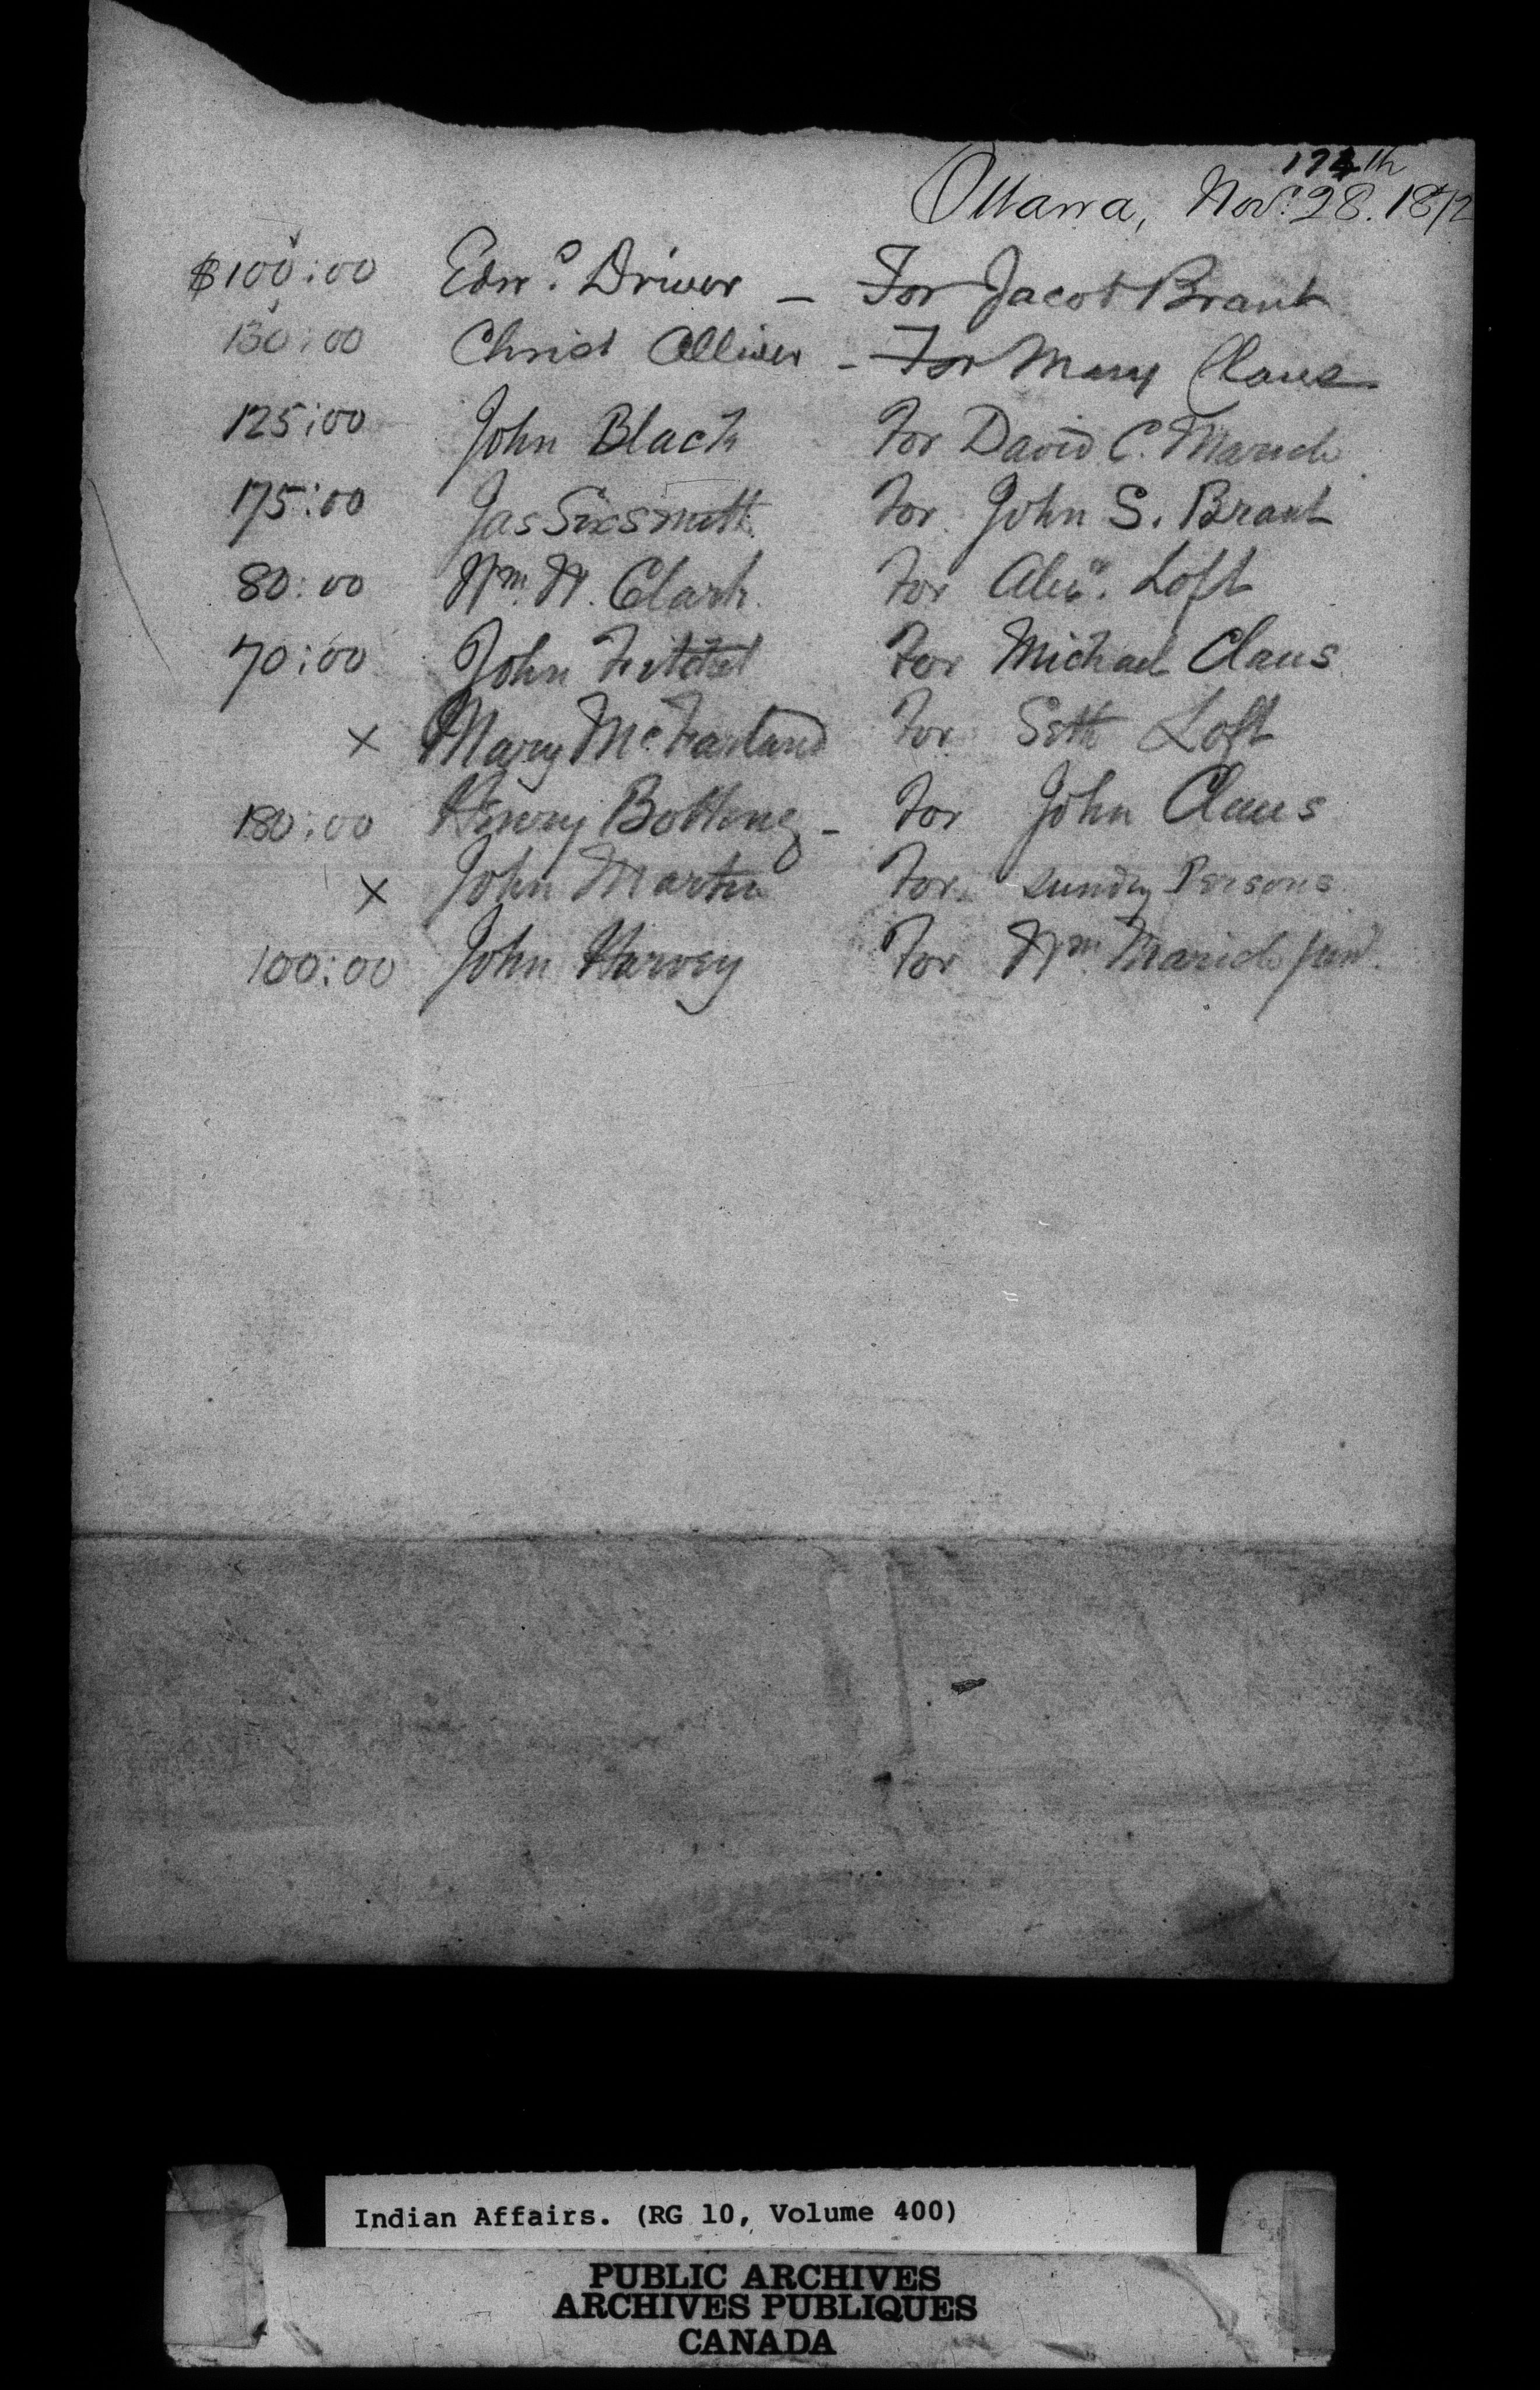 174th
Ottawa, Nov. 28. 1872
$100:00 Edwd. Driver – For Jacob Brant
130:00 Christ Alliver – For Mary Claus
125:00 John Black For David C. Maracle
175:00 Jas Sixsmith For John S. Brant
80:00 Wm. W. Clark For Alexr. Loft
70:00 John For Michael Claus
x Mary McFarland For Seth Loft
180:00 Henry Botting – For John Claus
x John Martin For sundry Persons
100:00 John Harvey For Wm. Maracle junr.
Indian Affairs. (RG 10, Volume 400)
PUBLIC ARCHIVES
ARCHIVES PUBLIQUES
CANADA